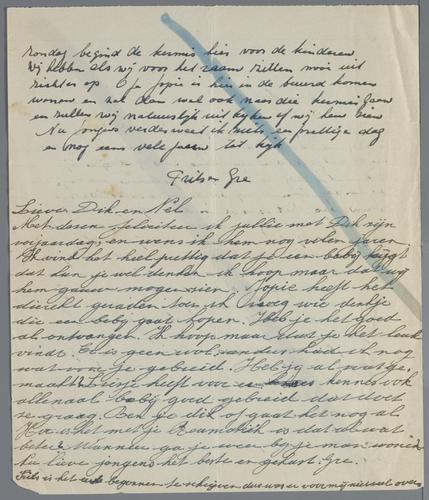 zondag begind de kermis hier voor de kinderen
wij hebben als wij voor het raam zitten mooi uit
zicht er op. O ja Jopie is hier in de buurd komen
wonen en zal dan wel ook naar die kermis gaan
en zullen wij natuurlijk uit kijken of wij hem zien
Nu jongens verder weet ik niets een prettige dag
en nog eens vele jaren tot kijk
Frits en Gre
Lieve Dik en Nel
Met deze feliciteer ik jullie met Dik zijn
verjaardag, en wens ik hem nog velen jaren
Ik vind het heel prettig dat je een baby krijgt
dat kan je wel denken ik hoop maar dat wij
hem gauw mogen zien. Jopie heeft het
direkt geraden toen ik vroeg wie denkje
die een baby gaat kopen. Heb je het goed
al ontvangen. Ik hoop maar dat je het leuk
vindt. Er is geen wol, anders had ik nog
wat voor je gebreid. Heb jij al matje,
maakt Liesje heeft voor een kennis ook
allemaal baby goed gebreid dat doet
ze graag. Ben je dik of gaat het nog al.
Hoe is het met je is dat al wat
beter? Wanneer ga je weer bij je man
Nu lieve jongens het beste en gekust. Gre.
Frits is het eerst begonnen te schrijven dus was er voor mij niet veel over